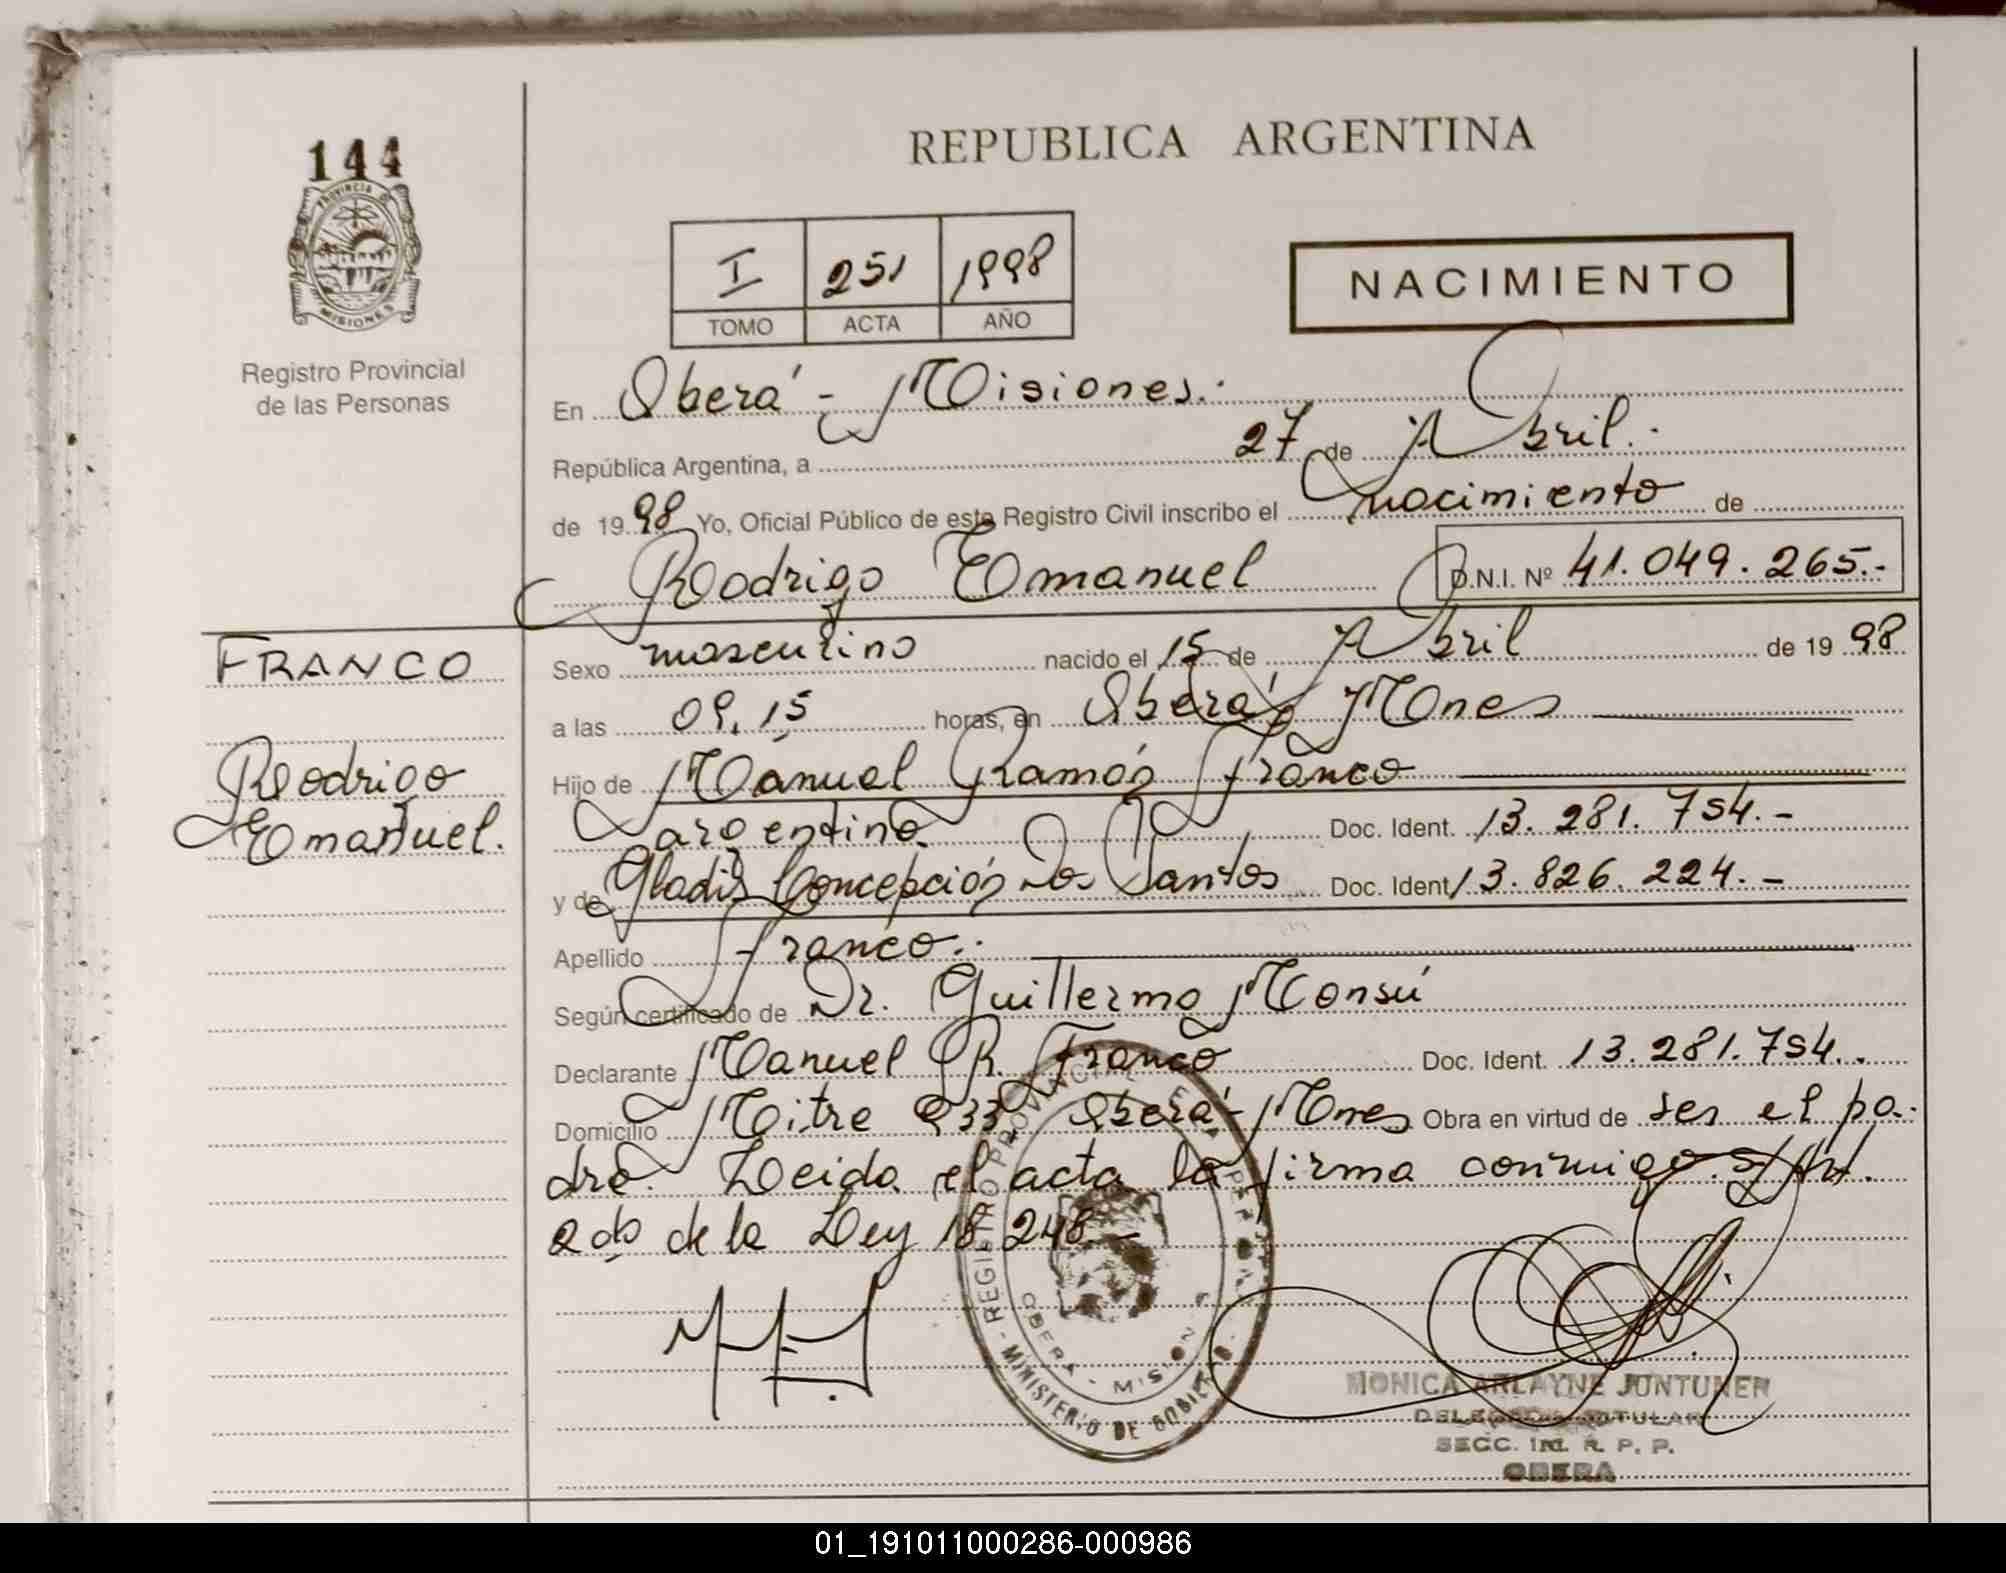 144
PROVINCIA DE
MISIONES
Registro Provincial
de las Personas
REPUBLICA ARGENTINA
I 251 1998
TOMO ACTA AÑO
NACIMIENTO
En Oberá - Misiones.
República Argentina, a 27 de Abril.
de 19 98 Yo, Oficial Público de este Registro Civil inscribo el nacimiento de
Rodrigo Emanuel D.N.I. Nº 41.049.265.-
FRANCO
Rodrigo
Emanuel.
Sexo masculino nacido el 15 de Abril de 19 98
a las 09,15 horas, en Oberá, Mnes
Hijo de Manuel Ramón Franco
argentino Doc. Ident. 13.281.754.-
y de Gladis Concepción Dos Santos Doc. Ident. 13.826.224.-
Apellido Franco.
Según certificado de Dr. Guillermo Monsú
Declarante Manuel R. Franco Doc. Ident. 13.281.754.
Domicilio Mitre 933 Oberá - Mnes Obra en virtud de ser el pa-
dre. Leida el acta la firma conmigo. S/Art.
2do de la Ley 18.248-
REGISTRO PROVINCIAL DE LA PERSONAS
OBERA - MISIONES
MINISTERIO DE GOBIERNO
MONICA ARLAYNE JUNTUNEN
DELEGADA TITULAR
SECC. 1ra. R. P. P.
OBERA
01_191011000286-000986